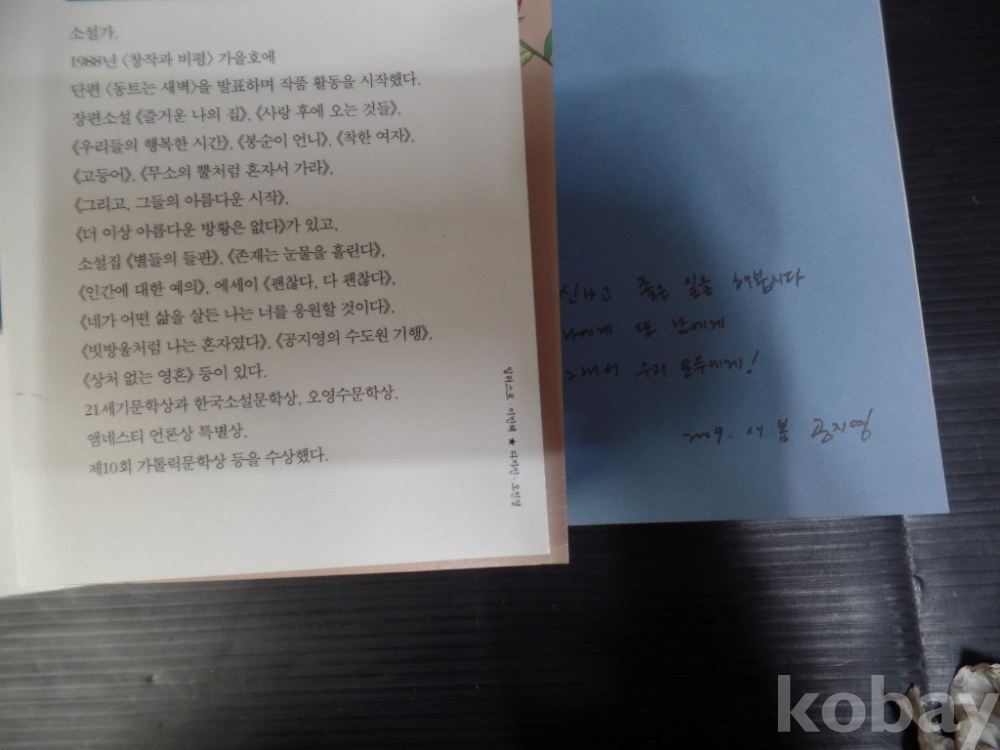 소설가.
1988년 〈창작과 비평〉 가을호에
단편 〈동트는 새벽〉을 발표하며 작품 활동을 시작했다.
장편소설 《즐거운 나의 집》, 《사랑 후에 오는 것들》,
《우리들의 행복한 시간》, 《봉순이 언니》, 《착한 여자》,
《고등어》, 《무소의 뿔처럼 혼자서 가라》,
《그리고, 그들의 아름다운 시작》,
《더 이상 아름다운 방황은 없다》가 있고,
소설집 《별들의 들판》, 《존재는 눈물을 흘린다》,
《인간에 대한 예의》, 에세이 《괜찮다, 다 괜찮다》,
《네가 어떤 삶을 살든 나는 너를 응원할 것이다》,
《빗방울처럼 나는 혼자였다》, 《공지영의 수도원 기행》,
《상처 없는 영혼》 등이 있다.
21세기문학상과 한국소설문학상, 오영수문학상,
앰네스티 언론상 특별상,
제10회 가톨릭문학상 등을 수상했다.
일러스트·이인혜 ★ 디자인·오진경
신나고 좋은 일을 해봅시다
나에게 또 남에게
그래서 우리 모두에게!
2009. 새봄 공지영
kobay